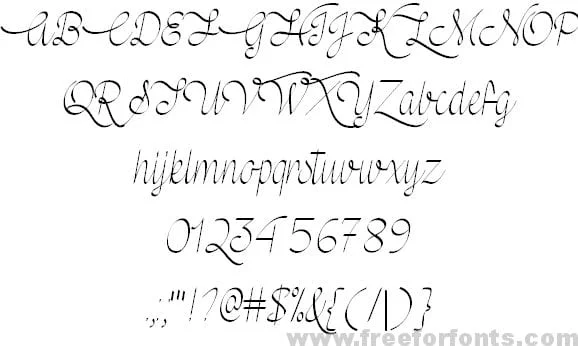 ABCDEFGHIJKLMNOP
QRSTUVWXYZabcdefg
hijklmnopqrstuvwxyz
0123456789
.:,;'"!?@#$%&{(/|\)}
www.freeforfonts.com